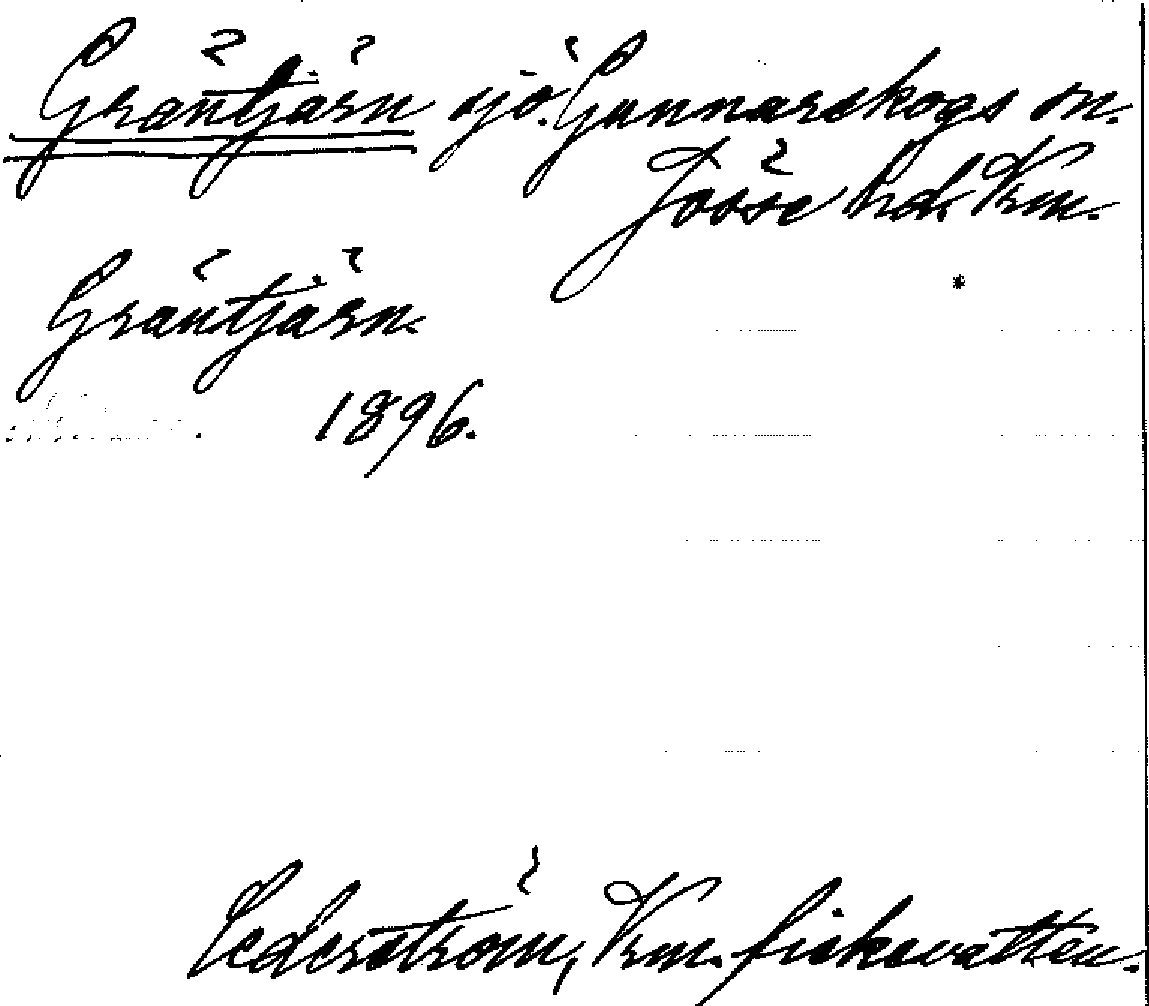 Gräntjärn sjö. Gunnarskogs sn.
Jösse hd. Vrm.
Gräntjärn.
1896.
Cederström, Vrm. fiskevatten.